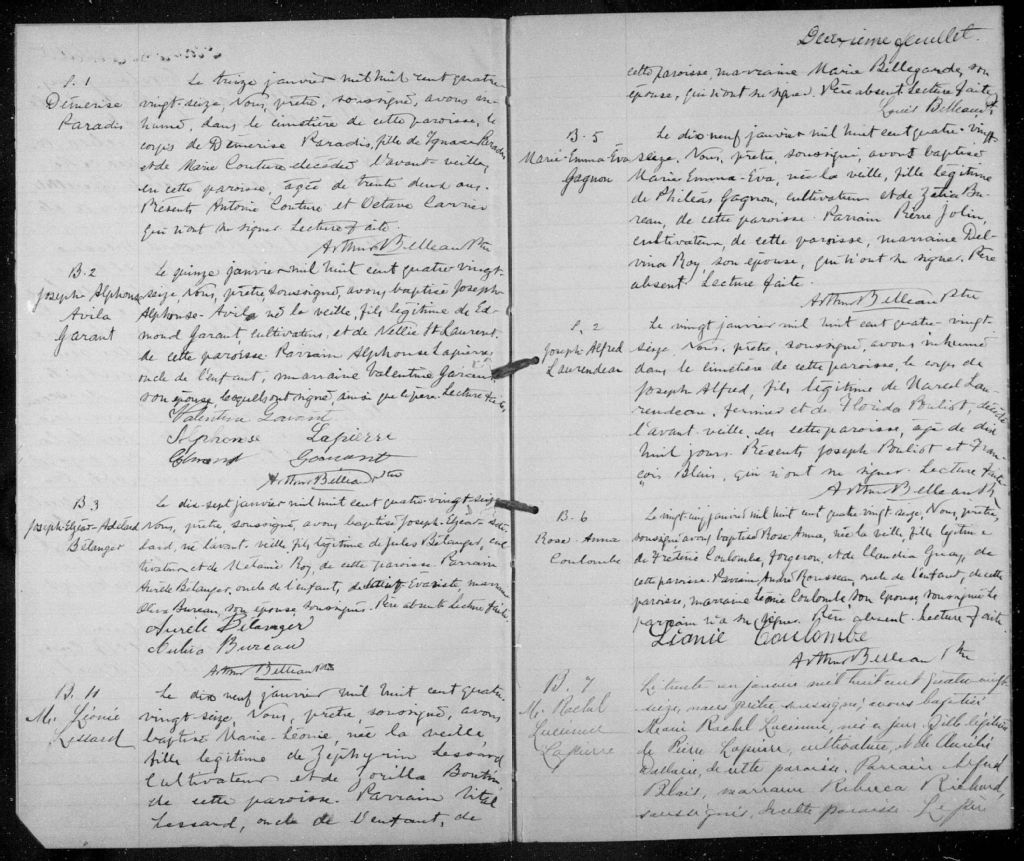 S. 1
Démerise
Paradis
Le treize janvier mil huit cent quatre
vingt-seize, Nous, prêtre, soussigné, avons in-
humé, dans le cimetière de cette paroisse, le
corps de Démerise Paradis, fille de Ignace Paradis
et de Marie Couture décédée l'avant-veille,
en cette paroisse, agée de trente deux ans.
Présents Antoine Couture et Octave Carrier
qui n'ont su signer. Lecture faite.
Arthur Belleau Ptre
B. 2
Joseph Alphonse
Avila
Garant
Le quinze janvier mil huit cent quatre vingt-
seize, Nous, prêtre, soussigné, avons baptisé Joseph-
Alphonse-Avila né la veille, fils légitime de Ed-
mond Garant, cultivateur, et de Nellie St Laurent
de cette paroisse. Parrain Alphonse Lapierre
oncle de l'enfant, marraine Valentine Garant
son épouse lesquels ont signé, ainsi que le père. Lecture faite.
Valentine Garant
Alphonse Lapierre
Edmond Garant
Arthur Belleau Ptre
B. 3
Joseph-Elzéar-Adélard
Bélanger
Le dix-sept janvier mil huit cent quatre-vingt seize
Nous, prêtre, soussigné, avons baptisé Joseph-Elzéar-Adé-
lard, né l'avant-veille, fils légitime de Jules Bélanger, cul-
tivateur et de Mélanie Roy, de cette paroisse. Parrain
Aurèle Bélanger, oncle de l'enfant, de Évariste, marraine
Bureau, son épouse soussignés. Père absent. Lecture faite.
Aurèle Bélanger
Bureau
Arthur Belleau Ptre
B. 4
M. Léonie
Lessard
Le dix neuf janvier mil huit cent quatre
vingt-seize, Nous, prêtre, soussigné, avons
baptisé Marie-Léonie née la veille
fille légitime de Zéphyrin Lessard
cultivateur et de Zorilla Boutin
de cette paroisse. Parrain Vital
Lessard, oncle de l'enfant, de
Deuxième feuillet.
cette paroisse, marraine Marie Bellegarde, son
épouse, qui n'ont su signer. Père absent Lecture faite
Louis Belleau, Ptre
B. 5
Marie-Emma-Eva
Gagnon
Le dix neuf janvier mil huit cent quatre-vingt-
seize. Nous, prêtre, soussigné, avons baptisé
Marie-Emma-Eva, née la veille, fille légitime
de Philéas Gagnon, cultivateur et de Zélia Bu-
reau, de cette paroisse. Parrain Pierre Jolin,
cultivateur, de cette paroisse, marraine Del-
vina Roy son épouse, qui n'ont su signer. Père
absent. Lecture faite.
Arthur Belleau Ptre
S. 2
Joseph Alfred
Laurendeau
Le vingt janvier mil huit cent quatre-vingt-
seize. Nous, prêtre, soussigné, avons inhumé
dans le cimetière de cette paroisse, le corps de
Joseph Alfred, fils légitime de Marcel Lau-
rendeau, fermier et de Florida Pouliot, décédé
l'avant-veille, en cette paroisse, agé de dix
huit jours. Présents Joseph Pouliot et Fran-
çois Blais, qui n'ont su signer. Lecture faite
Arthur Belleau Ptre
B. 6
Rose-Anna
Coulombe
Le vingt cinq janvier mil huit cent quatre vingt seize, Nous, prêtre,
soussigné avons baptisé Rose Anna, née la veille, fille légitime
de Frédéric Coulombe, forgeron, et de Claudia Guay, de
cette paroisse. Parrain André Rousseau, oncle de l'enfant, de cette
paroisse, marraine Léonie Coulombe son épouse, soussignée le
parrain n'a su signer. Père absent. Lecture faite.
Léonie Coulombe
Arthur Belleau Ptre
B. 7
M. Rachel
Lapierre
Le trente un janvier mil huit cent quatre-vingt
seize, nous prêtre soussigné, avons baptisé
Marie Rachel née ce jour, fille légitime
de Pierre Lapierre, cultivateur, et de Aurélie
Dallaire, de cette paroisse. Parrain
Blais, marraine Rebecca Richard,
soussignés, de cette paroisse. Le père